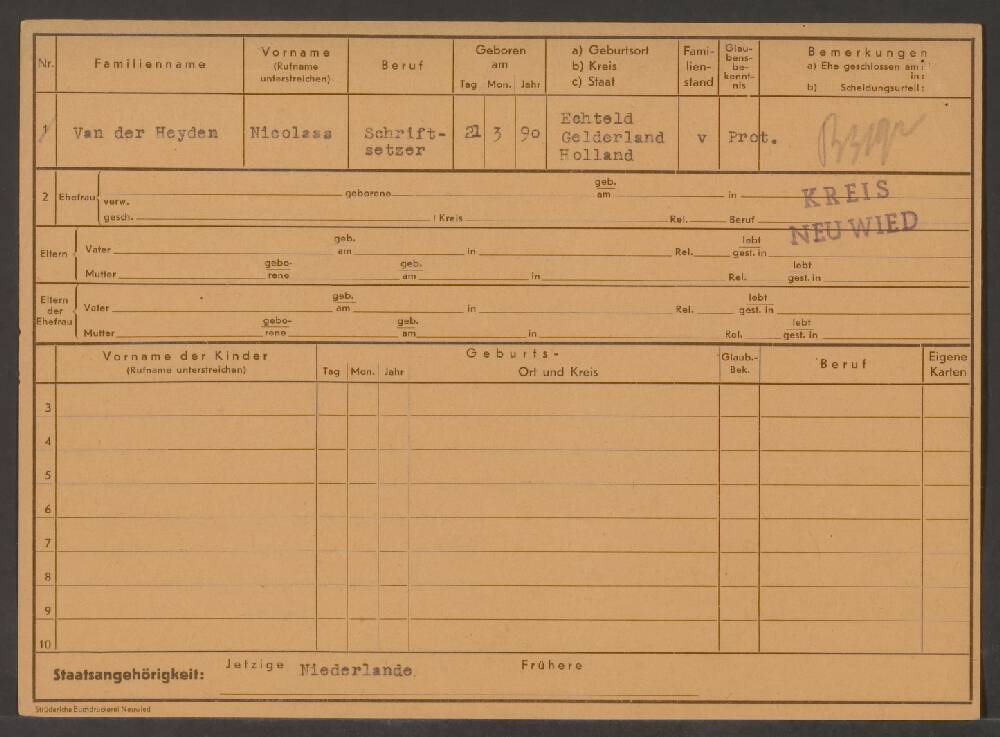 Nr. Familienname Vorname (Rufname unterstreichen) Beruf Geboren am Tag Mon. Jahr a) Geburtsort b) Kreis c) Staat Fami-lien-stand Glau-bens-be-kennt-nis Bemerkungen a) Ehe geschlossen am: in: b) Scheidungsurteil:
1 Van der Heyden Nicolass Schrift-setzer 21 3 90 Echteld Gelderland Holland v Prot.
2 Ehefrau verw. geborene geb. am in
gesch. Kreis Rel. Beruf
KREIS
NEUWIED
Eltern Vater geb. am in Rel. lebt gest. in
Mutter gebo-rene geb. am in Rel. lebt gest. in
Eltern der Ehefrau Vater geb. am in Rel. lebt gest. in
Mutter gebo-rene geb. am in Rel. lebt gest. in
Vorname der Kinder (Rufname unterstreichen) Tag Mon. Jahr Geburts- Ort und Kreis Glaub.-Bek. Beruf Eigene Karten
3
4
5
6
7
8
9
10
Staatsangehörigkeit: Jetzige Niederlande Frühere
Strüdersche Buchdruckerei Neuwied